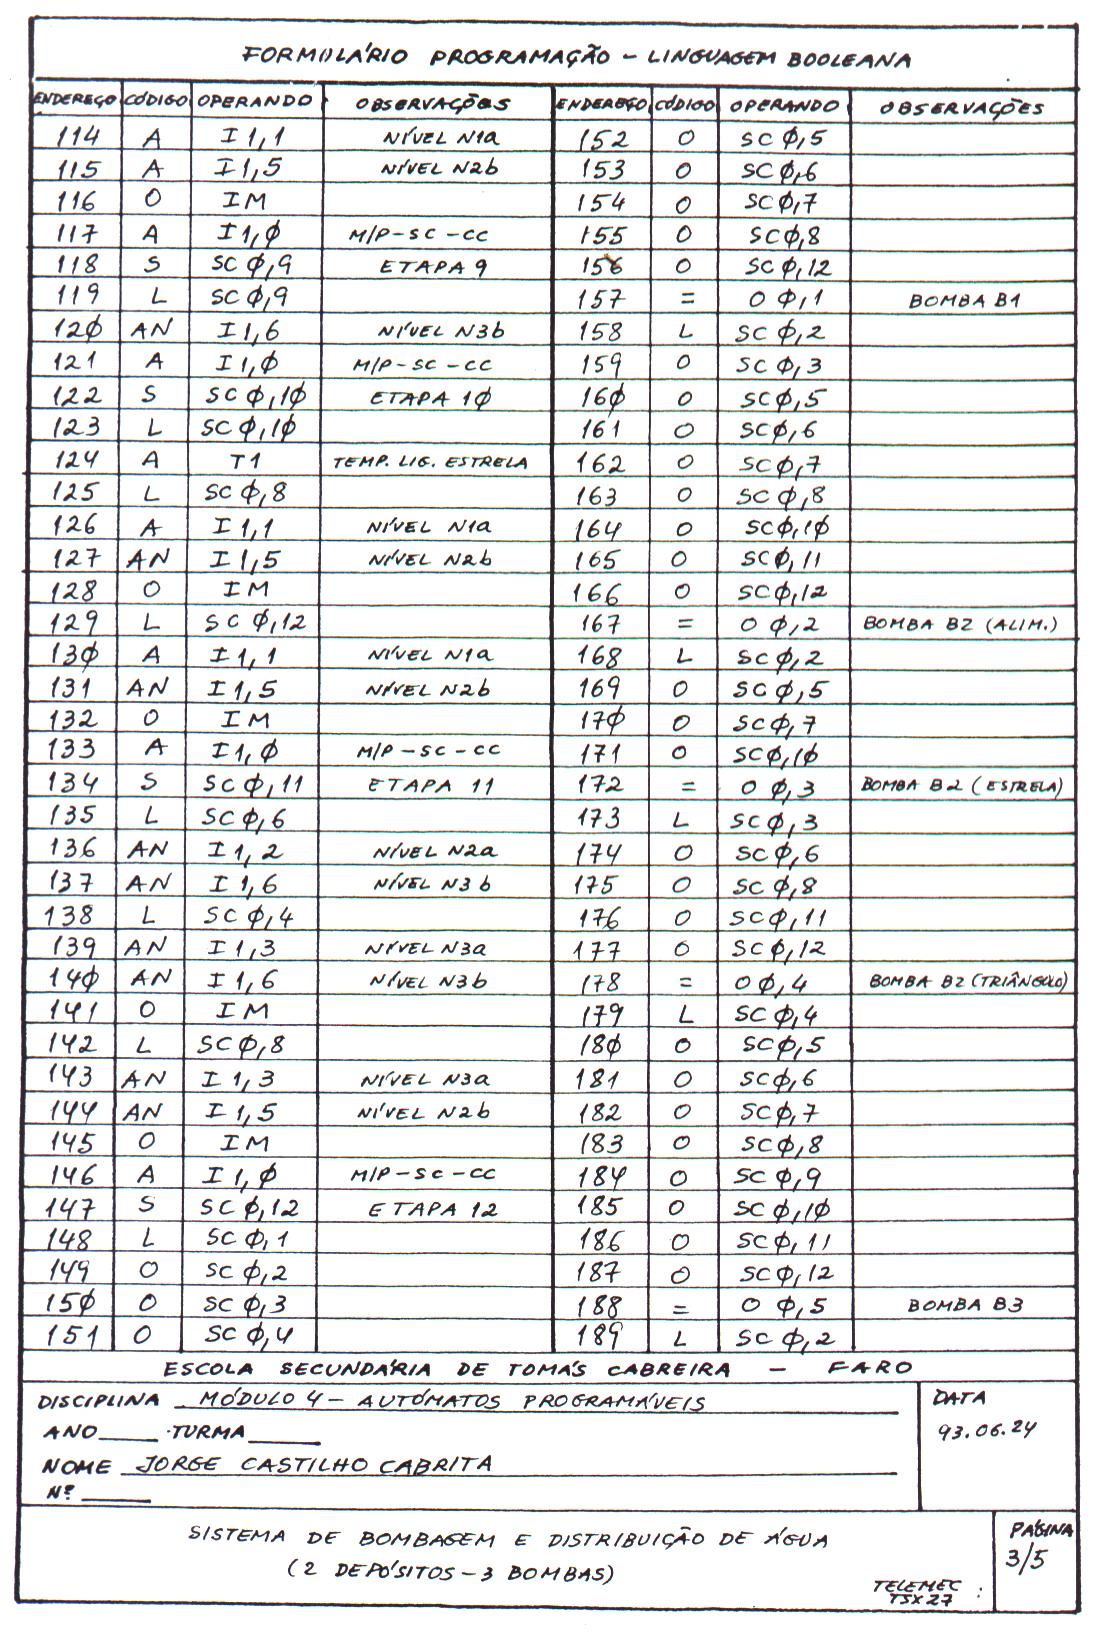 FORMULÁRIO PROGRAMAÇÃO - LINGUAGEM BOOLEANA
ENDEREÇO CÓDIGO OPERANDO OBSERVAÇÕES ENDEREÇO CÓDIGO OPERANDO OBSERVAÇÕES
114 A I1,1 NÍVEL N1a 152 O SCØ,5
115 A I1,5 NÍVEL N2b 153 O SCØ,6
116 O IM 154 O SCØ,7
117 A I1,Ø M/P-SC-CC 155 O SCØ,8
118 S SCØ,9 ETAPA 9 156 O SCØ,12
119 L SCØ,9 157 = OØ,1 BOMBA B1
12Ø AN I1,6 NÍVEL N3b 158 L SCØ,2
121 A I1,Ø M/P-SC-CC 159 O SCØ,3
122 S SCØ,1Ø ETAPA 1Ø 16Ø O SCØ,5
123 L SCØ,1Ø 161 O SCØ,6
124 A T1 TEMP. LIG. ESTRELA 162 O SCØ,7
125 L SCØ,8 163 O SCØ,8
126 A I1,1 NÍVEL N1a 164 O SCØ,1Ø
127 AN I1,5 NÍVEL N2b 165 O SCØ,11
128 O IM 166 O SCØ,12
129 L SCØ,12 167 = OØ,2 BOMBA B2 (ALIM.)
13Ø A I1,1 NÍVEL N1a 168 L SCØ,2
131 AN I1,5 NÍVEL N2b 169 O SCØ,5
132 O IM 17Ø O SCØ,7
133 A I1,Ø M/P-SC-CC 171 O SCØ,1Ø
134 S SCØ,11 ETAPA 11 172 = OØ,3 BOMBA B2 (ESTRELA)
135 L SCØ,6 173 L SCØ,3
136 AN I1,2 NÍVEL N2a 174 O SCØ,6
137 AN I1,6 NÍVEL N3b 175 O SCØ,8
138 L SCØ,4 176 O SCØ,11
139 AN I1,3 NÍVEL N3a 177 O SCØ,12
14Ø AN I1,6 NÍVEL N3b 178 = OØ,4 BOMBA B2 (TRIÂNGULO)
141 O IM 179 L SCØ,4
142 L SCØ,8 18Ø O SCØ,5
143 AN I1,3 NÍVEL N3a 181 O SCØ,6
144 AN I1,5 NÍVEL N2b 182 O SCØ,7
145 O IM 183 O SCØ,8
146 A I1,Ø M/P-SC-CC 184 O SCØ,9
147 S SCØ,12 ETAPA 12 185 O SCØ,1Ø
148 L SCØ,1 186 O SCØ,11
149 O SCØ,2 187 O SCØ,12
15Ø O SCØ,3 188 = OØ,5 BOMBA B3
151 O SCØ,4 189 L SCØ,2
ESCOLA SECUNDÁRIA DE TOMÁS CABREIRA - FARO
DISCIPLINA MÓDULO 4 - AUTÓMATOS PROGRAMÁVEIS
ANO____ TURMA____
NOME JORGE CASTILHO CABRITA
Nº ____
DATA
93.06.24
SISTEMA DE BOMBAGEM E DISTRIBUIÇÃO DE ÁGUA
(2 DEPÓSITOS - 3 BOMBAS)
TELEMEC :
TSX27
PÁGINA
3/5